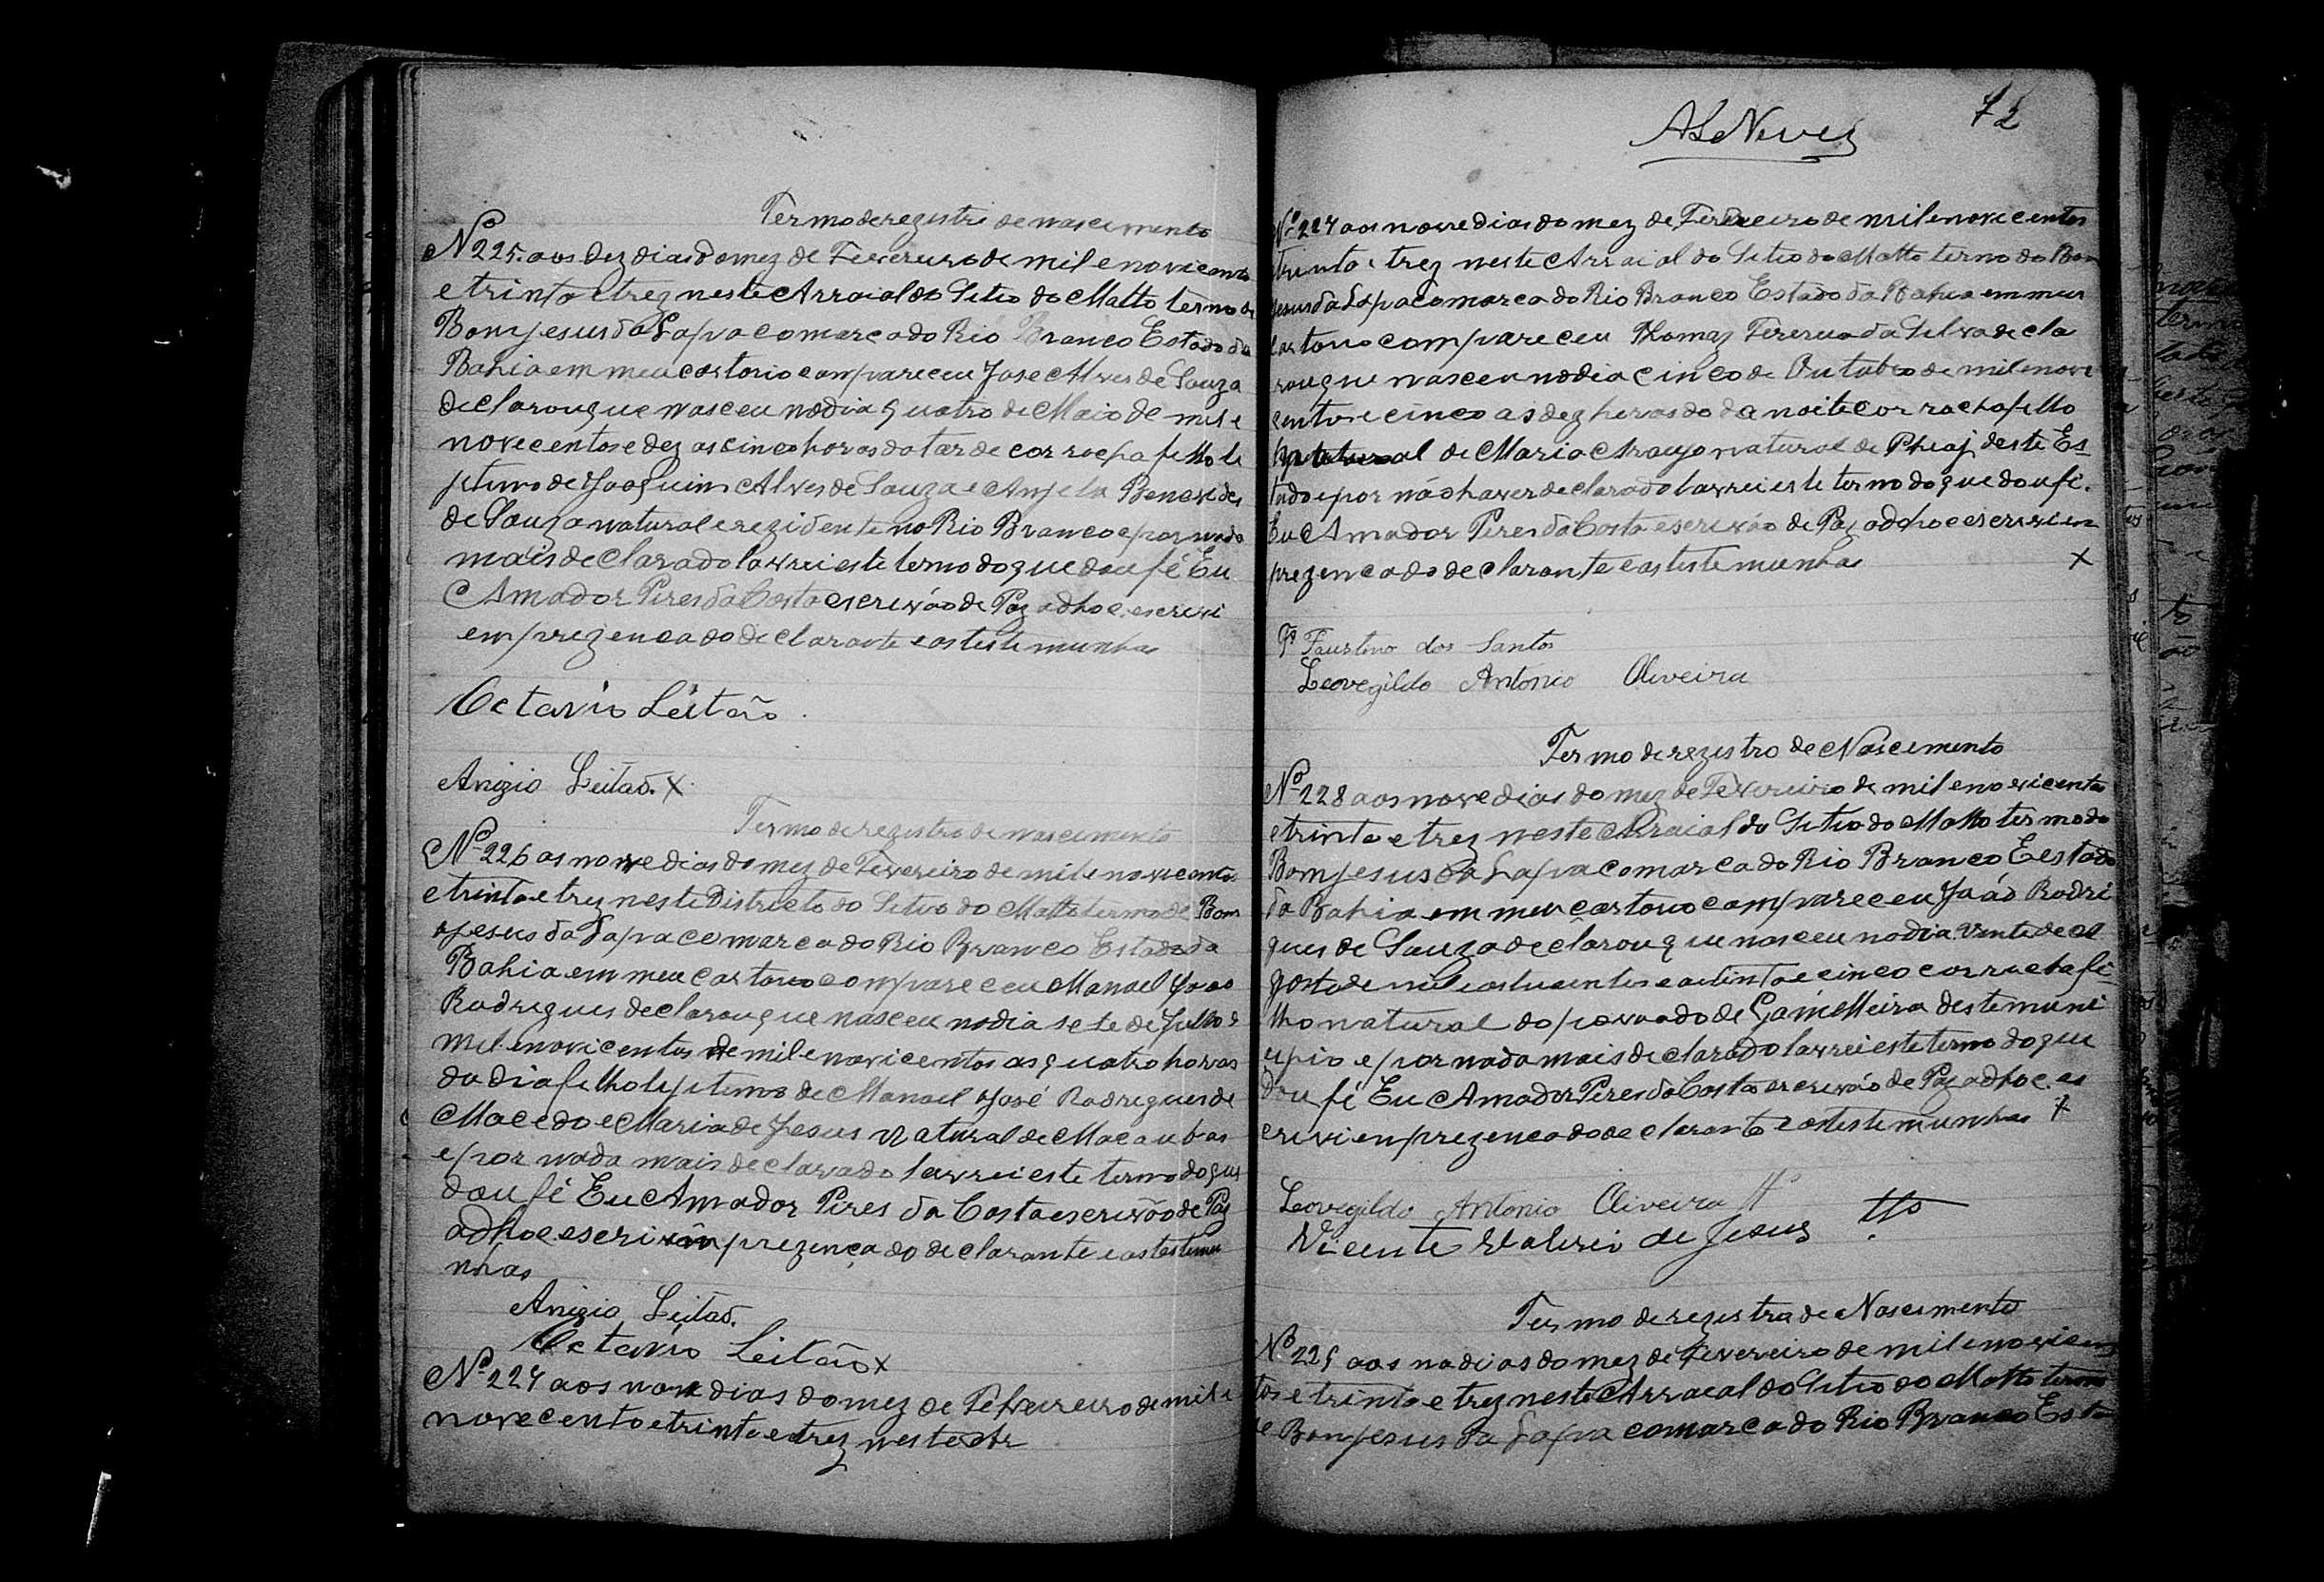 Termo de registro de nascimento
Nº 225. aos dez dias do mez de Fevereiro de mil e novicentos
e trinta e trez neste Arraial do Sitio do Matto termo de
Bom jesus da Lapa comarca do Rio Branco Estado da
Bahia em meu cartorio compareceu Jose Alves de Souza
declarou que nasceu no dia quatro de Maio de mil e
novecentos e dez as cinco horas da tarde cor rocha filho le
jitimo de Joaquim Alves de Souza e Anjela Benevides
de Souza natural e rezidente no Rio Branco e por nada
mais declarado lavrei este termo do que dou fé Eu
Amador Pires da Costa escrivão de Paz adhoc escrivi
em prezenca do declarante e as testemunhas
Octavio Leitão.
Anizio Leitão. X
Termo de registro de nascimento
Nº 226 as nove dias do mez de Fevereiro de mil e novicentos
e trinta e trez neste Districto do Sitio do Matto termo de Bom
jesus da Lapa comarca do Rio Branco Estado da
Bahia em meu cartorio compareceu Manoel José
Rodrigues declarou que nasceu no dia sete de Julho d
mil e novicentos de mil e novicentos as quatro horas
do dia filho lejitimo de Manoel José Rodrigues de
Macedo e Maria de Jesus Natural de Macaubas
e por nada mais declarado lavrei este termo do que
dou fé Eu Amador Pires da Costa escrivão de Paz
adhoc escrivi em prezença do declarante e as testemu
nhas
Anizio Leitão.
Octavio Leitão X
Nº 227 aos nove dias do mez de Fefvereiro de mil e
novecento e trinta e trez neste Ar
ALeNeves
72
Nº 227 aos nove dias do mez de Fevereiro de mil e novecentos
trinta e trez neste Arraial do Sitio do Matto termo do Bom
jesus da Lapa comarca do Rio Branco Estado da Bahia em meu
cartorio compareceu Thomaz Fereira da Silva decla
rou que nasceu no dia cinco de Outubro de mil e nove
centos e cinco as dez horas do da noite cor rocha filho
natural de Maria Araujo natural de deste Es
tado e por não haver declarado lavrei este termo do que dou fi.
Eu Amador Pires da Costa escrivão de Paz adhoc escrivi em
prezenca do declarante e as testemunhas X
Tª Faustino dos Santos
Leovegildo Antonio Oliveira
Termo de rezistro de Nascimento
Nº 228 aos nove dias do mez de Fevereiro de mil e novicentos
e trinta e trez neste Arraial do Sitio do Matto termo do
Bom jesus da Lapa comarca do Rio Branco Eestado
da Bahia em meu cartorio compareceu João Rodri
gues de Souza declarou que nasceu no dia vinte de A
gosto de mil e oitucentos e oitinta e cinco cor rocha fi
lho natural do povoado de Gamelleira deste muni
cipio e por nada mais declarado lavrei este termo do que
dou fé Eu Amador Pires da Costa escrivão de Paz adhoc es
crivi em prezenca do declarante e as testemunhas X
Leovegildo Antonio Oliveira
Vicente Valerio de Jesus
Termo de rezistra de Nascimento
Nº 229 aos no dias do mez de Fevereiro de mil e novicen
tos e trinta e trez neste Arraial do Sitio do Matto termo
de Bom jesus da Lapa comarca do Rio Branco Esta